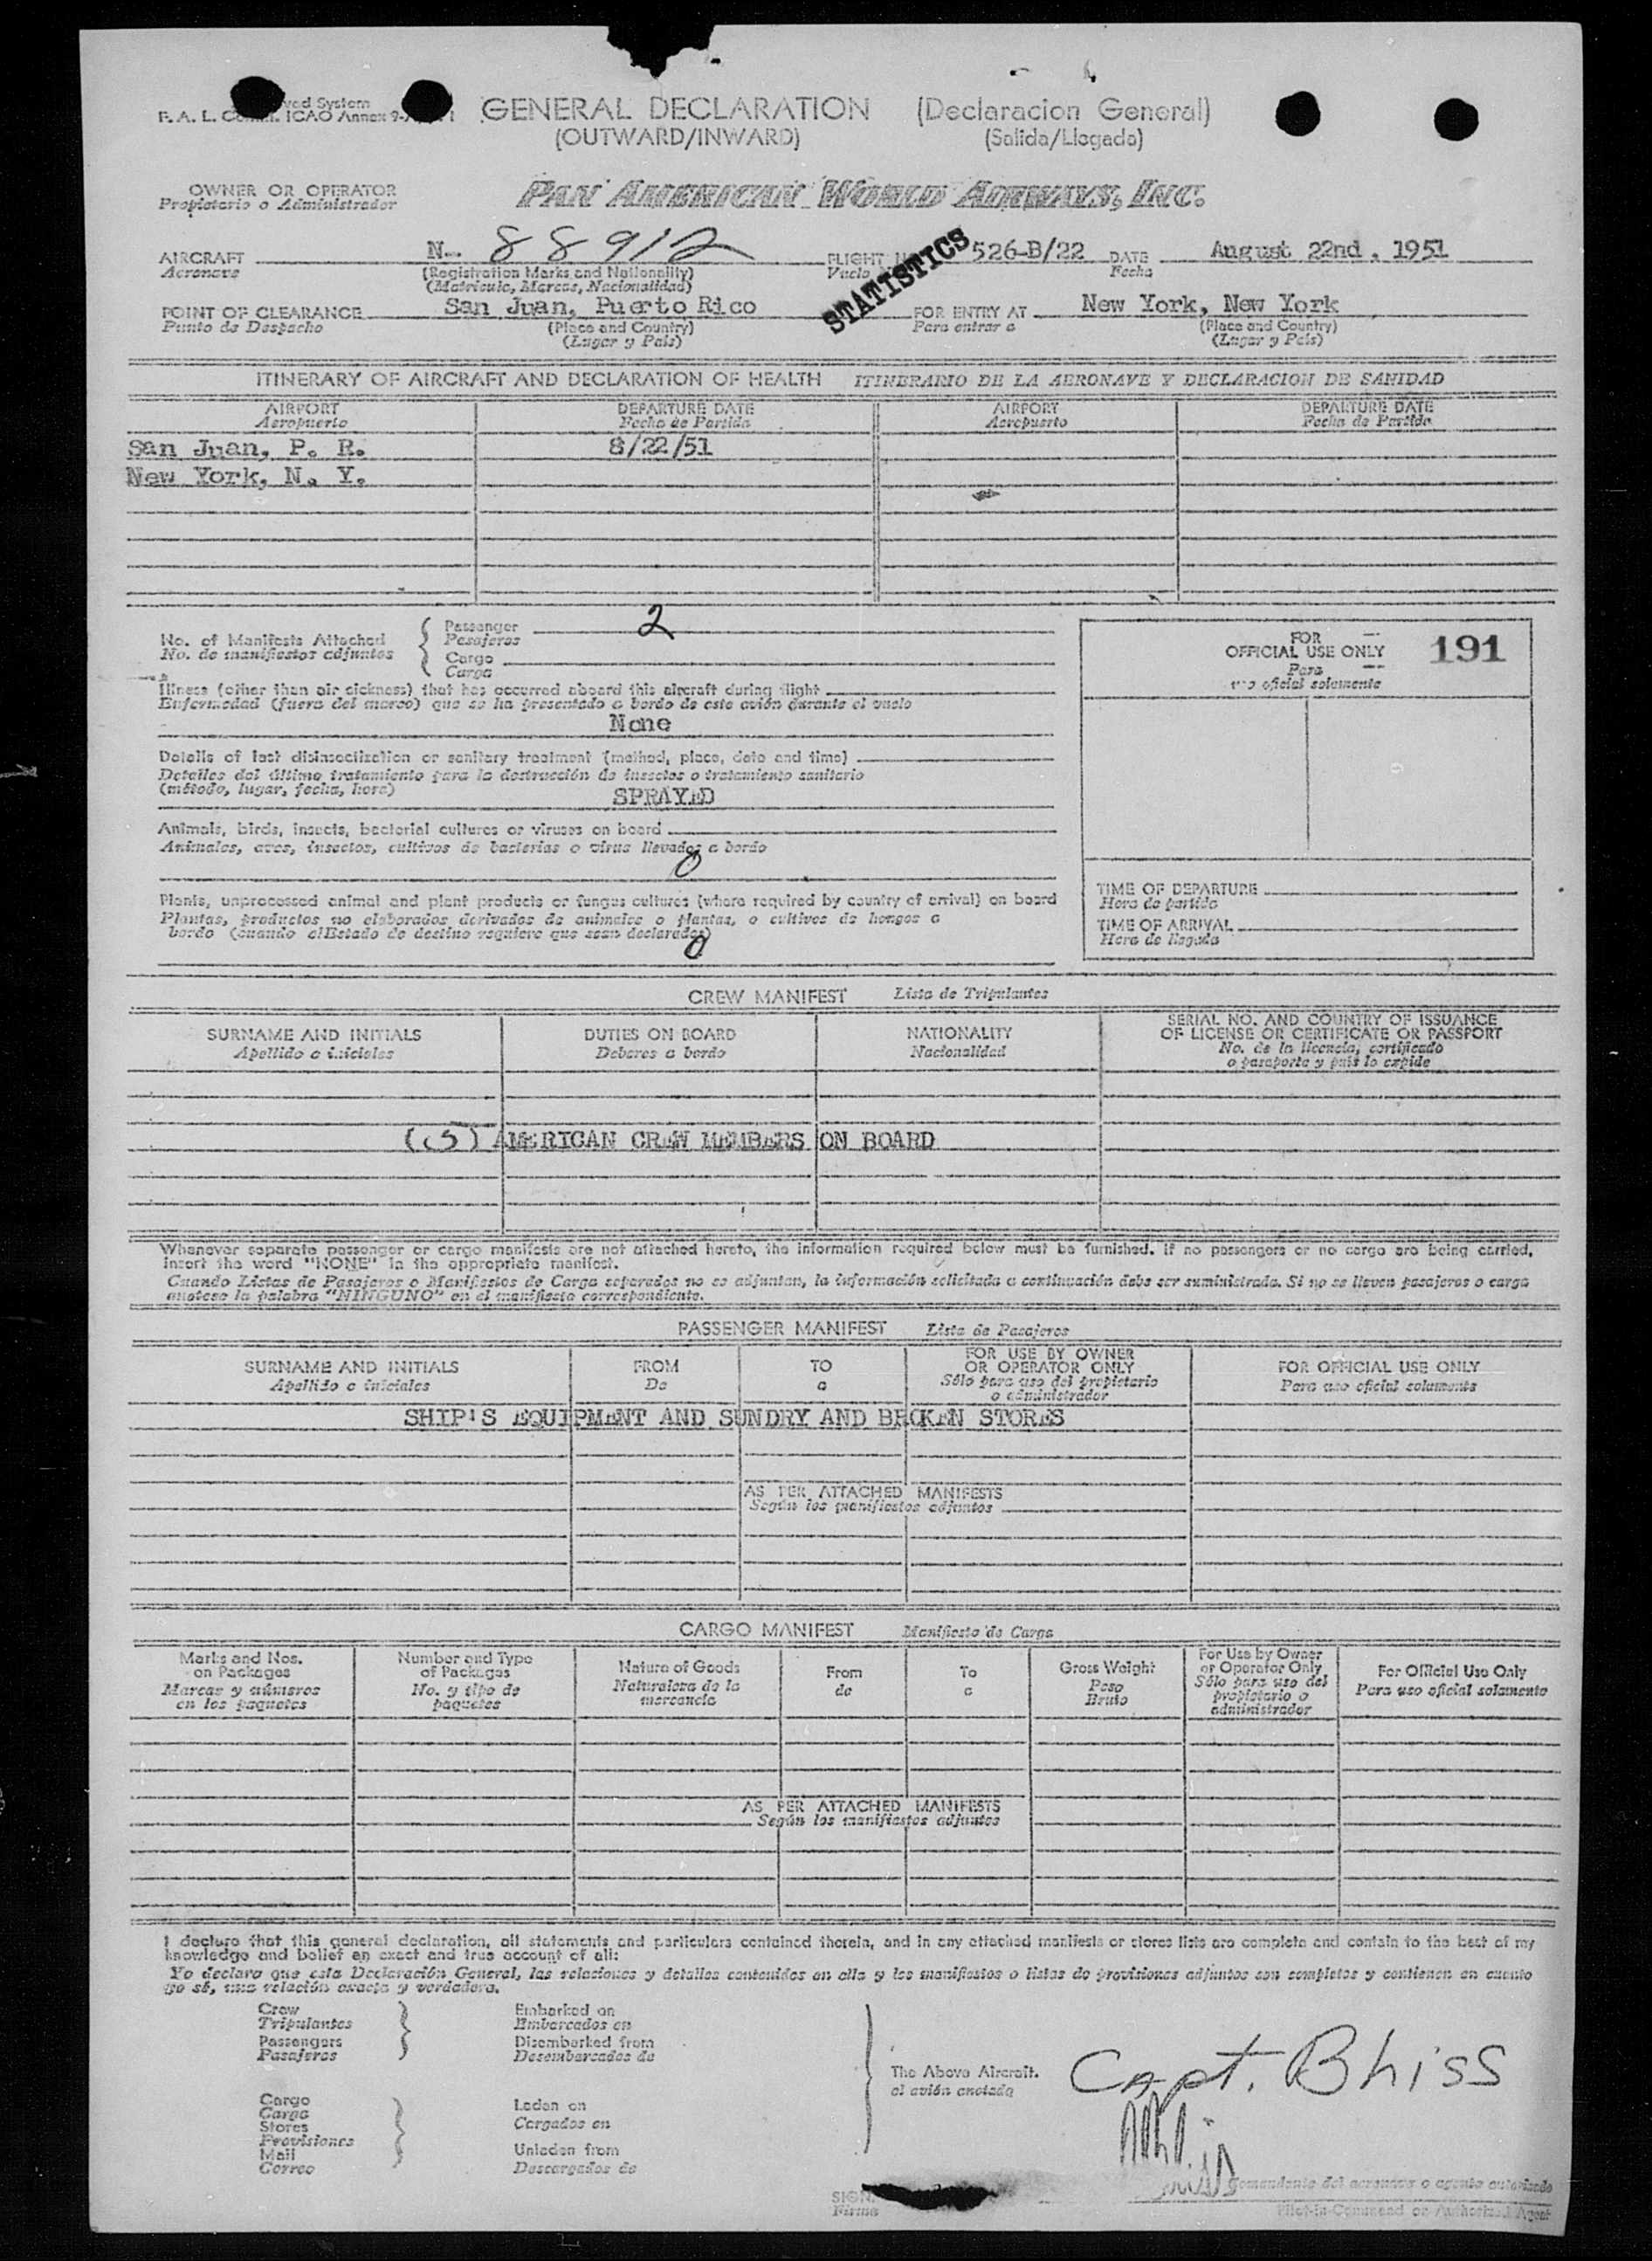 GENERAL DECLARATION (Declaracion General)
(OUTWARD/INWARD) (Salida/Llegada)
OWNER OR OPERATOR PAN AMERICAN WORLD AIRWAYS, INC.
Propietario o Administrador
AIRCRAFT N- 88912 FLIGHT 526-B/22 DATE August 22nd, 1951
Aeronave (Registration Marks and Nationality) Vuelo Fecha
(Matricula, Marcas, Nacionalidad)
STATISTICS
POINT OF CLEARANCE San Juan, Puerto Rico FOR ENTRY AT New York, New York
Punto de Despacho (Place and Country) Para entrar a (Place and Country)
(Lugar y Pais) (Lugar y Pais)
ITINERARY OF AIRCRAFT AND DECLARATION OF HEALTH ITINERARIO DE LA AERONAVE Y DECLARACION DE SANIDAD
AIRPORT DEPARTURE DATE AIRPORT DEPARTURE DATE
Aeropuerto Fecha de Partida Aeropuerto Fecha de Partida
San Juan, P. R. 8/22/51
New York, N. Y.
No. of Manifests Attached Passenger 2
No. de manifiestos adjuntos Pasajeros
Cargo
Carga
FOR
OFFICIAL USE ONLY 191
Para
uso oficial solamente
Illness (other than air sickness) that has occurred aboard this aircraft during flight
Enfermedad (fuera del mareo) que se ha presentado a bordo de este avión durante el vuelo
None
Details of last disinsectization or sanitary treatment (method, place, date and time)
Detalles del último tratamiento para la destrucción de insectos o tratamiento sanitario
(método, lugar, fecha, hora)
SPRAYED
Animals, birds, insects, bacterial cultures or viruses on board
Animales, aves, insectos, cultivos de bacterias o virus llevados a bordo
0
Plants, unprocessed animal and plant products or fungus cultures (where required by country of arrival) on board
Plantas, productos no elaborados derivados de animales o plantas, o cultivos de hongos a
bordo (cuando elEstado de destino requiere que sean declarados)
0
TIME OF DEPARTURE
Hora de partida
TIME OF ARRIVAL
Hora de llegada
CREW MANIFEST Lista de Tripulantes
SURNAME AND INITIALS DUTIES ON BOARD NATIONALITY SERIAL NO. AND COUNTRY OF ISSUANCE
OF LICENSE OR CERTIFICATE OR PASSPORT
Apellido e iniciales Deberes a bordo Nacionalidad No. de la licencia, certificado
o pasaporte y pais lo expide
(5) AMERICAN CREW MEMBERS ON BOARD
Whenever separate passenger or cargo manifests are not attached hereto, the information required below must be furnished. If no passengers or no cargo are being carried,
insert the word "NONE" in the appropriate manifest.
Cuando Listas de Pasajeros o Manifiestos de Carga separados no se adjuntan, la información solicitada a continuación debe ser suministrada. Si no se lleven pasajeros o carga
anotese la palabra "NINGUNO" en el manifiesto correspondiente.
PASSENGER MANIFEST Lista de Pasajeros
SURNAME AND INITIALS FROM TO FOR USE BY OWNER
OR OPERATOR ONLY FOR OFFICIAL USE ONLY
Apellido e iniciales De a Sólo para uso del propietario
o administrador Para uso oficial solamente
SHIP'S EQUIPMENT AND SUNDRY AND BROKEN STORES
AS PER ATTACHED MANIFESTS
Según los manifiestos adjuntos
CARGO MANIFEST Manifiesto de Carga
Marks and Nos.
on Packages
Marcas y números
en los paquetes
Number and Type
of Packages
No. y tipo de
paquetes
Nature of Goods
Naturaleza de la
mercancia
From
de
To
a
Gross Weight
Peso
Bruto
For Use by Owner
or Operator Only
Sólo para uso del
propietario o
administrador
For Official Use Only
Para uso oficial solamente
AS PER ATTACHED MANIFESTS
Según los manifiestos adjuntos
I declare that this general declaration, all statements and particulars contained therein, and in any attached manifests or stores lists are complete and contain to the best of my
knowledge and belief an exact and true account of all:
Yo declaro que esta Declaración General, las relaciones y detalles contenidos en ella y los manifiestos o listas de provisiones adjuntos son completos y contienen en cuanto
yo sé, una relación exacta y verdadera.
Crew Embarked on
Tripulantes Embarcados en
Passengers Disembarked from
Pasajeros Desembarcados de
The Above Aircraft.
el avión anotado
Capt. Bhiss
Cargo Laden on
Carga Cargados en
Stores
Provisiones
Mail Unladen from
Correo Descargados de
SIGN.
Firma
Comandante del aeronave o agente autorizado
Pilot-in-Command or Authorized Agent